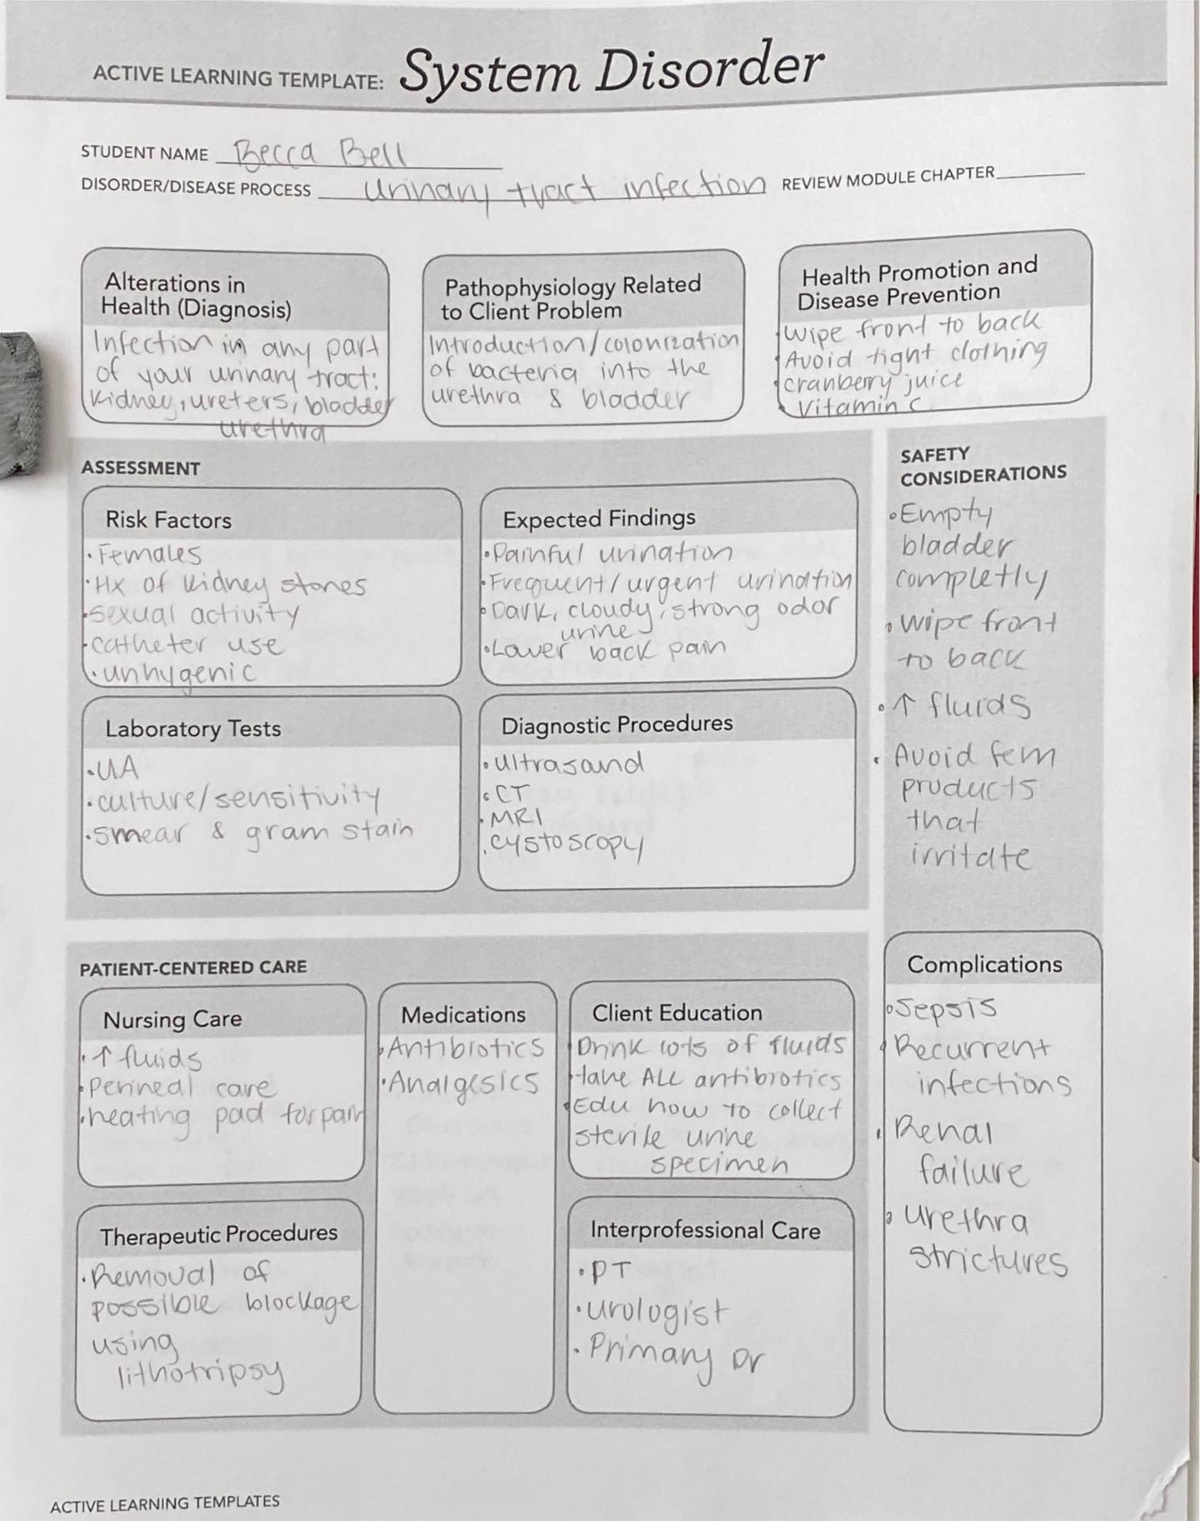 ACTIVE LEARNING TEMPLATE: System Disorder
STUDENT NAME Becca Bell
DISORDER/DISEASE PROCESS urinary tract infection REVIEW MODULE CHAPTER
Alterations in
Health (Diagnosis)
Infection in any part
of your urinary tract:
kidney, ureters, bladder
urethra
Pathophysiology Related
to Client Problem
Introduction/colonization
of bacteria into the
urethra & bladder
Health Promotion and
Disease Prevention
• Wipe front to back
• Avoid tight clothing
• cranberry juice
• Vitamin C
ASSESSMENT
Risk Factors
• Females
• Hx of kidney stones
• sexual activity
• catheter use
• unhygenic
Expected Findings
• Painful urination
• Frequent/urgent urination
• Dark, cloudy, strong odor
urine
• Lower back pain
Laboratory Tests
• UA
• culture/sensitivity
• smear & gram stain
Diagnostic Procedures
• ultrasound
• CT
• MRI
• cystoscopy
SAFETY
CONSIDERATIONS
• Empty
bladder
completly
• wipe front
to back
• ↑ fluids
• Avoid fem
products
that
irritate
PATIENT-CENTERED CARE
Nursing Care
• ↑ fluids
• Perineal care
• heating pad for pain
Medications
• Antibiotics
• Analgesics
Client Education
• Drink lots of fluids
• take ALL antibiotics
• Edu how to collect
sterile urine
specimen
Therapeutic Procedures
• Removal of
possible blockage
using
lithotripsy
Interprofessional Care
• PT
• urologist
• Primary Dr
Complications
• Sepsis
• Recurrent
infections
• Renal
failure
• urethra
strictures
ACTIVE LEARNING TEMPLATES